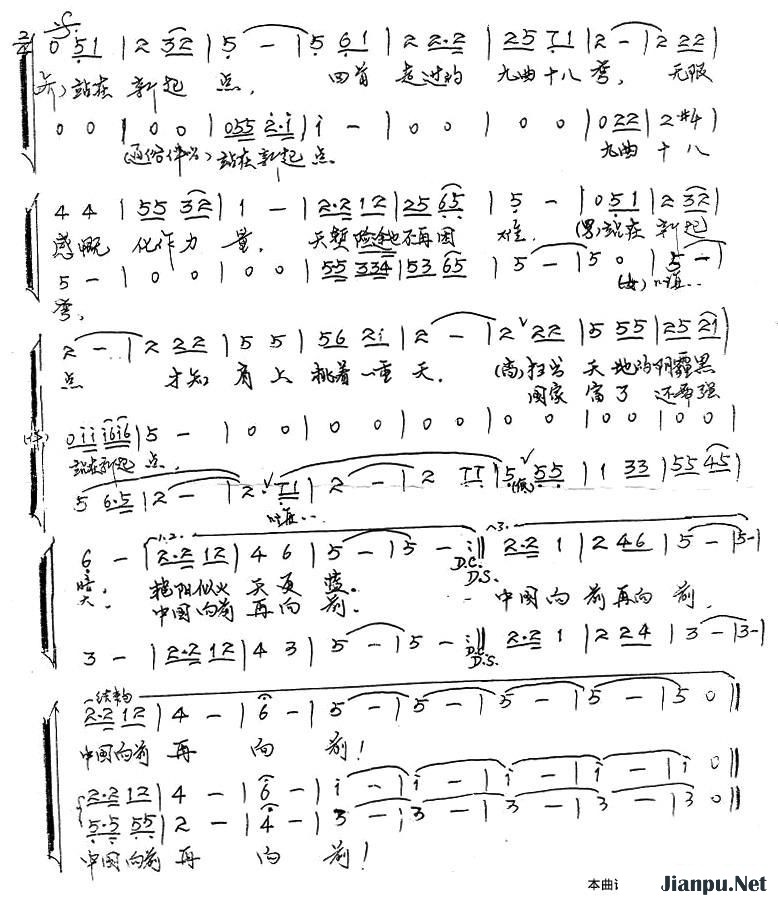 2/4 0 5 1 | 2 3 2 | 5 - | 5 6 1 | 2 2·2 | 2 5 7 1 | 2 - | 2 2 2 |
齐)站在 新起 点, 回首 走过的 九曲十八 弯, 无限
0 0 | 0 0 | 0 5 5 2·i | i - | 0 0 | 0 0 | 0 2 2 | 2 #4 |
站在新起 点. 九曲 十 八
4 4 | 5 5 3 2 | 1 - | 2·2 1 2 | 2 5 6 5 | 5 - | 0 5 1 | 2 3 2 |
感慨 化作力 量. 天堑险途也不再困 难. (男)站在 新起
5 - | 0 0 | 0 0 | 5 5 3 3 4 | 5 3 6 5 | 5 - | 5 0 | 5 - |
弯, (女)
2 - | 2 2 2 | 5 5 | 5 6 2 i | 2 - | 2 ∨ 2 2 | 5 5 5 | 2 5 2 i |
点 才知 肩上 挑着一重 天. (高)扫当 天 地的阴霾黑
国家 富了 还要强
0 i i i 6 i 6 | 5 - | 0 0 | 0 0 | 0 0 | 0 0 | 0 0 | 0 0 |
站在新起 点,
5 6·5 | 2 - | 2· ∨ 7 1 | 2 - | 2 7 7 | 5 ∨ 5 5 | 1 3 3 | 5 5 4 5 |
(低)
1.2. 3.
6 - | 2·2 1 2 | 4 6 | 5 - | 5 - :|| 2·2 1 | 2 4 6 | 5 - | 5 - |
D.C.
D.S.
暗. 艳阳似火 天更 蓝.
大. 中国向前 再向 前. - 中国向 前再向 前.
3 - | 2·2 1 2 | 4 3 | 5 - | 5 - :|| 2·2 1 | 2 2 4 | 3 - | 3 - |
D.C.
D.S.
结束句
2·2 1 2 | 4 - | 6 - | 5 - | 5 - | 5 - | 5 - | 5 0 ||
中国向前 再 向 前!
2·2 1 2 | 4 - | 6 - | i - | i - | i - | i - | i 0 ||
5·5 5 5 | 2 - | 4 - | 3 - | 3 - | 3 - | 3 - | 3 0 ||
中国向前 再 向 前!
本曲 Jianpu.Net